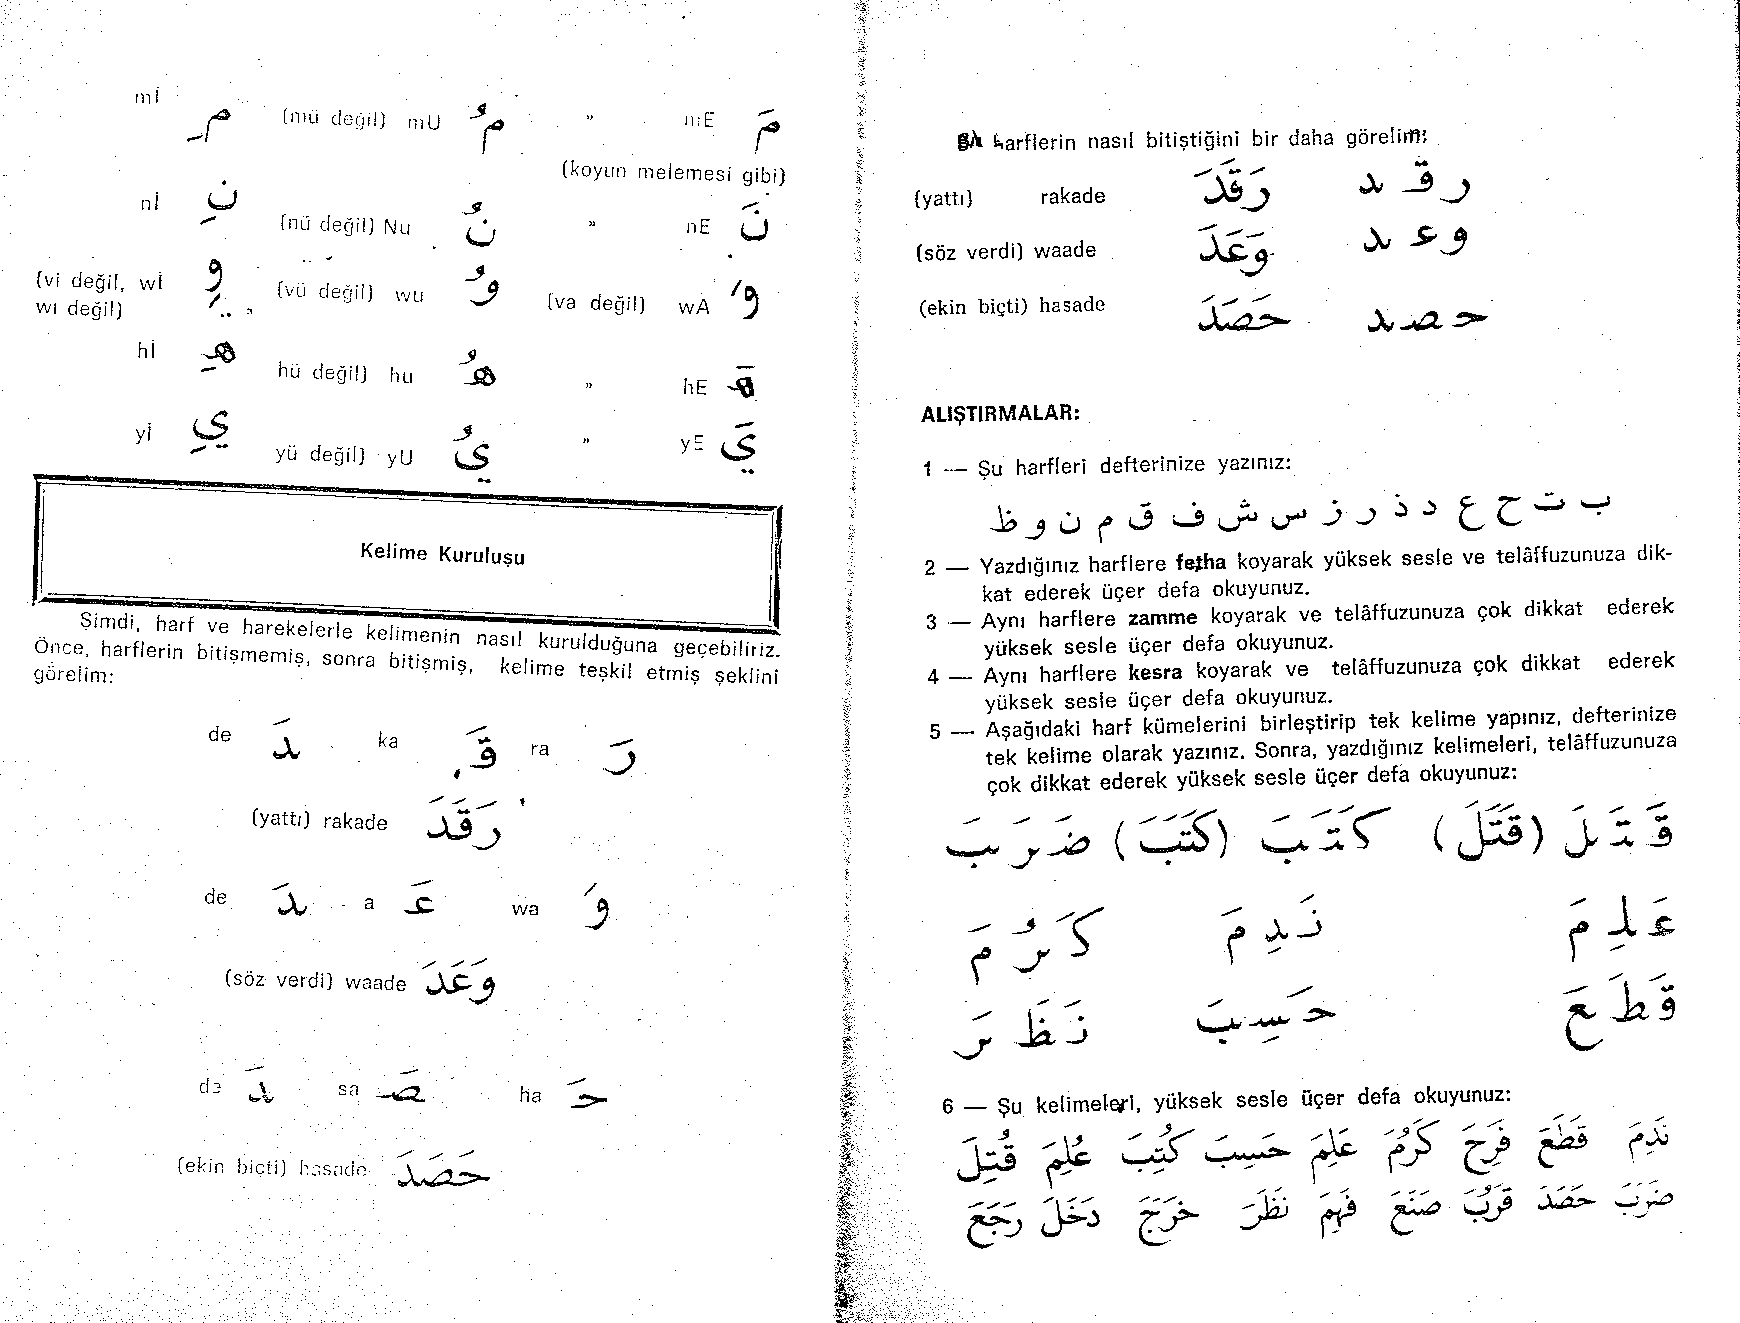 mİ مِ (mü değil) mU مُ » mE مَ
(koyun melemesi gibi)
nİ نِ (nü değil) Nu نُ » nE نَ
(vi değil, wİ وِ (vü değil) wu وُ (va değil) wA وَ
wı değil)
hİ هِ hü değil) hu هُ » hE هَ
yİ يِ yü değil) yU يُ » yE يَ
Kelime Kuruluşu
Şimdi, harf ve harekelerle kelimenin nasıl kurulduğuna geçebiliriz.
Önce, harflerin bitişmemiş, sonra bitişmiş, kelime teşkil etmiş şeklini
görelim:
de دَ ka قَ ra رَ
(yattı) rakade رَقَدَ
de دَ a عَ wa وَ
(söz verdi) waade وَعَدَ
de دَ sa صَ ha حَ
(ekin biçti) hasade حَصَدَ
harflerin nasıl bitiştiğini bir daha görelim:
(yattı) rakade رَقَدَ ر قـ ـد
(söz verdi) waade وَعَدَ و عـ ـد
(ekin biçti) hasade حَصَدَ حـ ـصـ ـد
ALIŞTIRMALAR:
1 — Şu harfleri defterinize yazınız:
ب ت ح ع د ذ ر ز س ش ف ق م ن و ظ
2 — Yazdığınız harflere fetha koyarak yüksek sesle ve telâffuzunuza dik-
kat ederek üçer defa okuyunuz.
3 — Aynı harflere zamme koyarak ve telâffuzunuza çok dikkat ederek
yüksek sesle üçer defa okuyunuz.
4 — Aynı harflere kesra koyarak ve telâffuzunuza çok dikkat ederek
yüksek sesle üçer defa okuyunuz.
5 — Aşağıdaki harf kümelerini birleştirip tek kelime yapınız, defterinize
tek kelime olarak yazınız. Sonra, yazdığınız kelimeleri, telâffuzunuza
çok dikkat ederek yüksek sesle üçer defa okuyunuz:
قَـ ـتَـ ـلَ (قَتَلَ) كَـ ـتَـ ـبَ (كَتَبَ) ضَـ ـرَ بَ
عَـ ـلِـ ـمَ نَـ ـدِ مَ كَـ ـرُ مَ
قَـ ـطَـ ـعَ حَـ ـسِـ ـبَ نَـ ـظَـ ـرَ
6 — Şu kelimeleri, yüksek sesle üçer defa okuyunuz:
نَدِمَ قَطَعَ فَرِحَ كَرُمَ عَلِمَ حَسِبَ كُتِبَ عُلِمَ قُتِلَ
ضَرَبَ حَصَدَ قَرُبَ صَنَعَ فَهِمَ نَظَرَ خَرَجَ دَخَلَ رَجَعَ